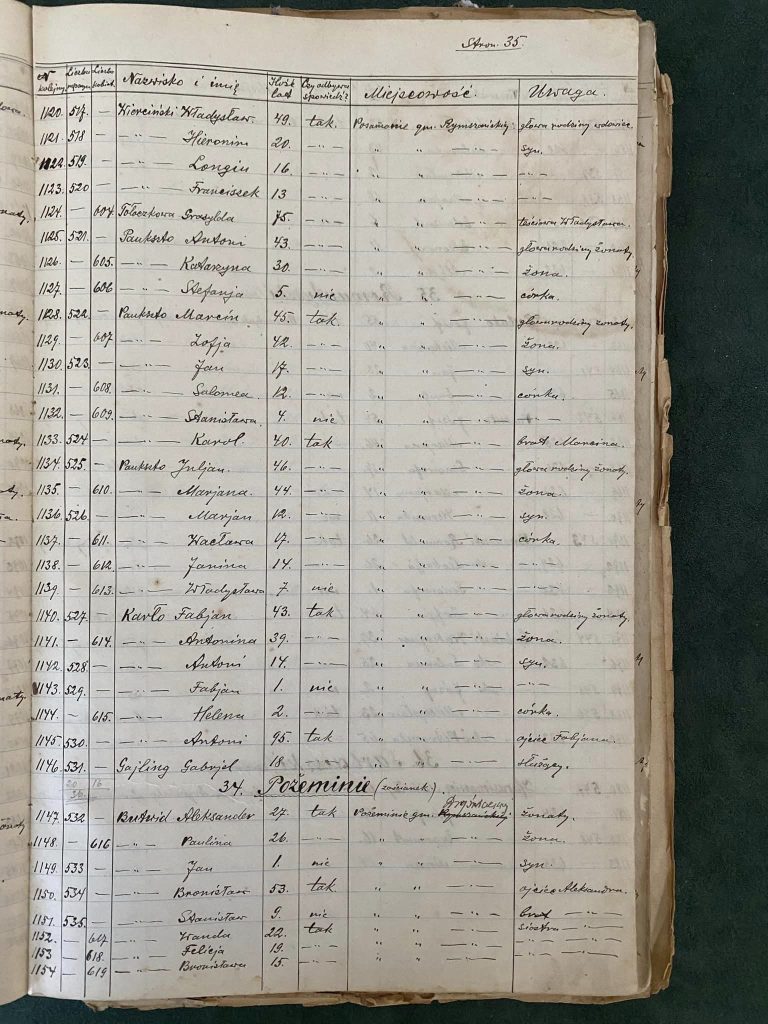 Stron. 35.
N kolejny Liczba mężczyzn Liczba kobiet Nazwisko i imię Ilość lat Czy odbywa spowiedź? Miejscowość. Uwaga.
1120. 517. — Wierciński Władysław. 49. tak. gm. Rymszańskiej. głowa rodziny wdowiec.
1121. 518 — — " — Hieronim 20. — " — " " — " — syn.
1122. 519. — — " — Longin 16. — " — " " — " — — " —
1123. 520 — — " — Franciszek 13 — " — " " — " — — " —
1124. — 604. Tołoczkowa Grasylda 75. — " — " " — " — teściowa Władysława.
1125. 521. — Pauksto Antoni 43. — " — " " — " — głowa rodziny żonaty.
1126. — 605. — " — Katarzyna 30. — " — " " — " — żona.
1127. — 606 — " — Stefanja 5. nie " " — " — córka.
1128. 522. — Pauksto Marcin 45. tak. " " — " — głowa rodziny żonaty.
1129. — 607 — " — Zofja 42. — " — " " — " — żona.
1130. 523. — — " — Jan 17. — " — " " — " — syn.
1131. — 608. — " — Salomea. 12. — " — " " — " — córka.
1132. — 609. — " — Stanisława. 4. nie " " — " — — " —
1133. 524 — — " — Karol. 40. tak " " — " — brat Marcina.
1134. 525. — Pauksto Juljan. 46. — " — " " — " — głowa rodziny żonaty.
1135. — 610. — " — Marjana. 44. — " — " " — " — żona.
1136. 526. — — " — Marjan 12. — " — " " — " — syn.
1137. — 611. — " — Wacława 17. — " — " " — " — córka.
1138. — 612. — " — Janina 14. — " — " " — " — — " —
1139. — 613. — " — Władysława 7. nie " " — " — — " —
1140. 527. — Karło Fabjan 43. tak " " — " — głowa rodziny żonaty.
1141. — 614. — " — Antonina 39. — " — " " — " — żona.
1142. 528. — — " — Antoni 14. — " — " " — " — syn.
1143. 529. — — " — Fabjan 1. nie " " — " — — " —
1144. — 615. — " — Helena 2. — " — " " — " — córka.
1145. 530. — — " — Antoni 95. tak " " — " — ojciec Fabjana.
1146. 531. — Gajling Gabrjel 18. — " — " " — " — służący.
20 16
36.
34. Pożeminie (zaścianek).
1147. 532 — Butwid Aleksander 27. tak Pożeminie gm. Rymszańskiej żonaty.
1148. — 616 — " — Paulina 26. — " — " " — " — żona.
1149. 533 — — " — Jan 1. nie " " — " — syn
1150. 534 — — " — Bronisław 53. tak " " — " — ojciec Aleksandra.
1151. 535. — — " — Stanisław 9. nie " " — " — brat — " —
1152. — 617. — " — Wanda 22. tak " " — " — siostra — " —
1153 — 618. — " — Felicja 19. — " — " " — " — — " — — " —
1154 — 619 — " — Bronisława 15. — " — " " — " — — " — — " —